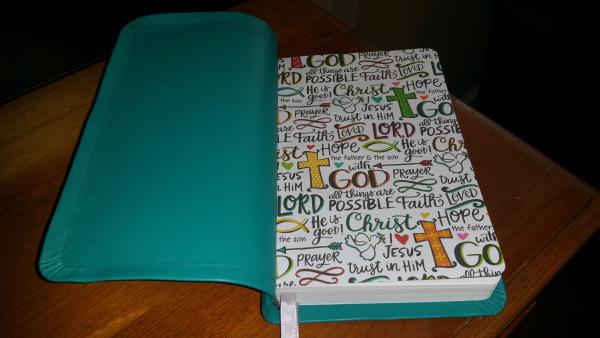 GOD PRAYER
LORD all things are POSSIBLE Faith LOVED trust in HiM
He is good! Christ I JESUS HOPE
the son PRAYER trust in HiM with GOD
all things are POSSIBLE Faith LOVED LORD
He is good!
Christ HOPE the father & the son
JESUS with GOD PRAYER
trust in HiM
LORD all things are POSSIBLE Faith LOVED
He is good! Christ HOPE
the son I JESUS the father
PRAYER trust in HiM with GOD
all things